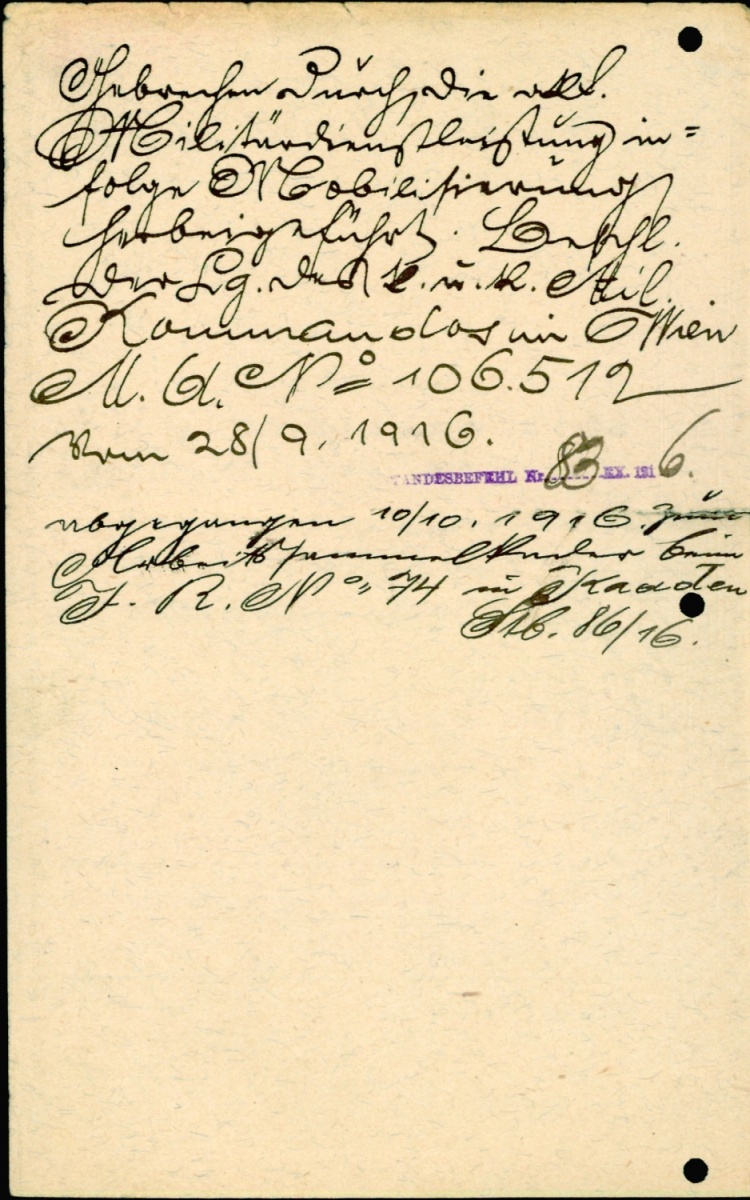 Gebrechen durch die akt.
Militärdienstleistung in=
folge Mobilisierung
herbeigeführt. Beschl.
der Lg. des k. u. k. Mil.
Kommandos in Wien
M. A. Nº 106.512
vom 28/9. 1916.
STANDESBEFEHL Nr. 83 EX. 1916.
abgegangen 10/10. 1916. zum
Arbeitssammelkader beim
I. R. Nº 74 in Kaaden
Stb. 86/16.